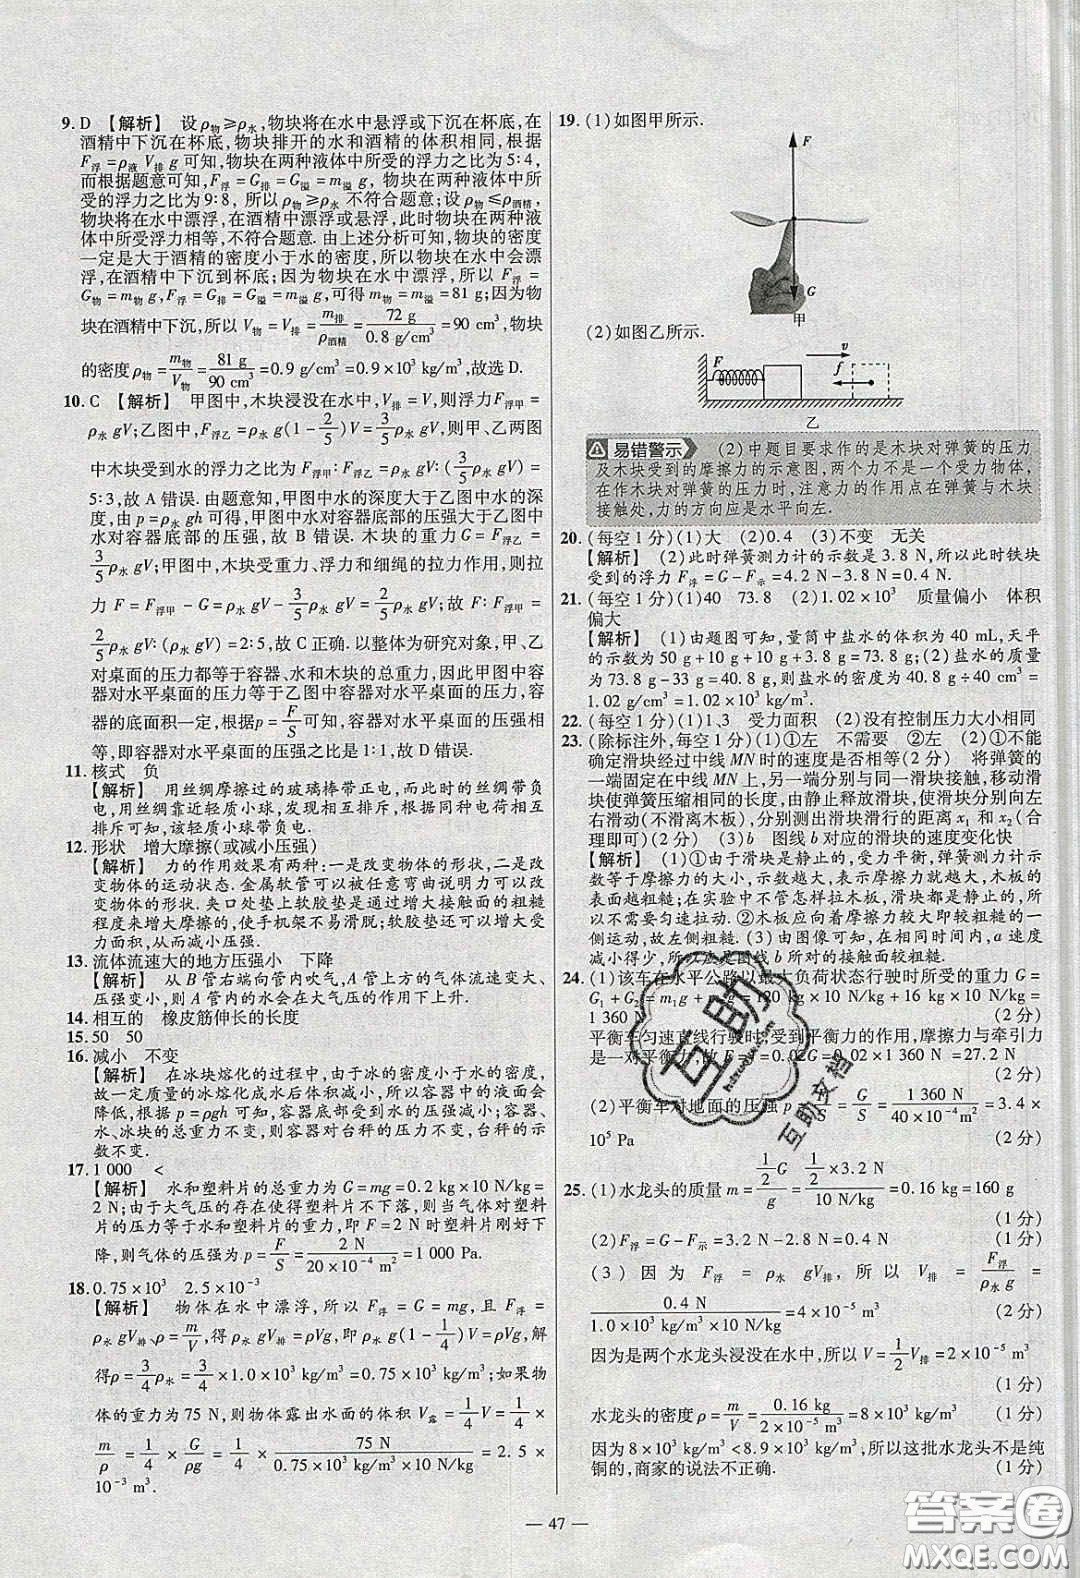 9. D 【解析】 设 ρ物≥ρ水,物块将在水中悬浮或下沉在杯底,在
酒精中下沉在杯底,物块排开的水和酒精的体积相同,根据
F浮=ρ液 V排 g 可知,物块在两种液体中所受的浮力之比为 5∶4,
而根据题意可知,F浮=G排=G溢=m溢 g,物块在两种液体中所
受的浮力之比为 9∶8, 所以 ρ物≥ρ水 不符合题意;设 ρ物≤ρ酒精,
物块将在水中漂浮,在酒精中漂浮或悬浮,此时物块在两种液
体中所受浮力相等,不符合题意. 由上述分析可知,物块的密度
一定是大于酒精的密度小于水的密度,所以物块在水中会漂
浮,在酒精中下沉到杯底;因为物块在水中漂浮,所以 F浮=
G物=m物 g,F浮=G排=G溢=m溢 g,可得 m物=m溢=81 g;因为物
块在酒精中下沉,所以 V物=V排=m排/ρ酒精=72 g/0.8 g/cm³=90 cm³,物块
的密度 ρ物=m物/V物=81 g/90 cm³=0.9 g/cm³=0.9×10³ kg/m³,故选 D.
10. C 【解析】 甲图中,木块浸没在水中,V排=V,则浮力 F浮甲=
ρ水 gV;乙图中,F浮乙=ρ水 g(1-2/5)V=3/5ρ水 gV,则甲、乙两图
中木块受到水的浮力之比为 F浮甲∶F浮乙=ρ水 gV∶(3/5ρ水 gV)=
5∶3,故 A 错误. 由题意知,甲图中水的深度大于乙图中水的深
度,由 p=ρ水 gh 可得,甲图中水对容器底部的压强大于乙图中
水对容器底部的压强,故 B 错误. 木块的重力 G=F浮乙=
3/5ρ水 gV;甲图中,木块受重力、浮力和细绳的拉力作用,则拉
力 F=F浮甲-G=ρ水 gV-3/5ρ水 gV=2/5ρ水 gV;故 F∶F浮甲=
2/5ρ水 gV∶(ρ水 gV)=2∶5,故 C 正确. 以整体为研究对象,甲、乙
对桌面的压力都等于容器、水和木块的总重力,因此甲图中容
器对水平桌面的压力等于乙图中容器对水平桌面的压力,容
器的底面积一定,根据p=F/S可知,容器对水平桌面的压强相
等,即容器对水平桌面的压强之比是 1∶1,故 D 错误.
11. 核式 负
【解析】 用丝绸摩擦过的玻璃棒带正电,而此时的丝绸带负
电,用丝绸靠近轻质小球,发现相互排斥,根据同种电荷相互排
斥可知,该轻质小球带负电.
12. 形状 增大摩擦(或减小压强)
【解析】 力的作用效果有两种:一是改变物体的形状,二是改
变物体的运动状态. 金属软管可以被任意弯曲说明力可以改
变物体的形状. 夹口处垫上软胶垫是通过增大接触面的粗糙
程度来增大摩擦的,使手机架不易滑脱;软胶垫还可以增大受
力面积,从而减小压强.
13. 流体流速大的地方压强小 下降
【解析】 从 B 管右端向管内吹气,A 管上方的气体流速变大、
压强变小,则 A 管内的水会在大气压的作用下上升.
14. 相互的 橡皮筋伸长的长度
15. 50 50
16. 减小 不变
【解析】 在冰块熔化的过程中,由于冰的密度小于水的密度,
故一定质量的冰熔化成水后体积减小,所以容器中的液面会
降低,根据 p=ρgh 可知,容器底部受到水的压强减小;容器、
水、冰块的总重力不变,则容器对台秤的压力不变,台秤的示
数不变.
17. 1 000 <
【解析】 水和塑料片的总重力为 G=mg=0.2 kg×10 N/kg=
2 N;由于大气压的存在使得塑料片不下落,则当大气对塑料
片的压力等于水和塑料片的重力,即 F=2 N 时塑料片刚好下
降,则气体的压强为 p=F/S=2 N/20×10⁻⁴ m²=1 000 Pa.
18. 0.75×10³ 2.5×10⁻³
【解析】 物体在水中漂浮,所以 F浮=G=mg,且 F浮=
ρ水 gV排、ρ=m/V,得 ρ水 gV排=ρVg,即 ρ水 g(1-1/4)V=ρVg,解
得ρ=3/4ρ水=3/4×1.0×10³ kg/m³=0.75×10³ kg/m³;如果物
体的重力为 75 N,则物体露出水面的体积 V露=1/4V=1/4×
m/ρ=1/4×G/ρg=1/4×75 N/0.75×10³ kg/m³×10 N/kg=2.5×
10⁻³ m³.
19. (1)如图甲所示.
F
G
甲
(2)如图乙所示.
F
v
f
乙
易错警示 (2)中题目要求作的是木块对弹簧的压力
及木块受到的摩擦力的示意图,两个力不是一个受力物体,
在作木块对弹簧的压力时,注意力的作用点在弹簧与木块
接触处,力的方向应是水平向左.
20. (每空 1 分)(1)大 (2)0.4 (3)不变 无关
【解析】 (2)此时弹簧测力计的示数是 3.8 N,所以此时铁块
受到的浮力 F浮=G-F示=4.2 N-3.8 N=0.4 N.
21. (每空 1 分)(1)40 73.8 (2)1.02×10³ 质量偏小 体积
偏大
【解析】 (1)由题图可知,量筒中盐水的体积为 40 mL,天平
的示数为 50 g+10 g+10 g+3.8 g=73.8 g;(2)盐水的质量
为 73.8 g-33 g=40.8 g,则盐水的密度为 40.8 g÷40 cm³=
1.02 g/cm³=1.02×10³ kg/m³.
22. (每空 1 分)(1)1、3 受力面积 (2)没有控制压力大小相同
23. (除标注外,每空 1 分)(1)①左 不需要 ②左 (2)①不能
确定滑块经过中线 MN 时的速度是否相等(2 分) 将弹簧的
一端固定在中线 MN 上,另一端分别与同一滑块接触,移动滑
块使弹簧压缩相同的长度,由静止释放滑块,使滑块分别向左
右滑动(不滑离木板),分别测出滑块滑行的距离 x₁ 和 x₂(合
理即可)(2 分) (3)b 图线 b 对应的滑块的速度变化快
【解析】 (1)①由于滑块是静止的,受力平衡,弹簧测力计示
数等于摩擦力的大小,示数越大,则摩擦力就越大,木板的
表面越粗糙;在实验中不管怎样拉木板,滑块都是静止的,所
以不需要匀速拉动. ②木板应向着摩擦力较大即较粗糙的一
侧运动,故左侧粗糙. (3)由图像可知,在相同时间内,a 速度
减小得少,所以应是图线 b 对应的接触面较粗糙.
24. (1)该车在水平公路以最大负荷状态行驶时所受的重力 G=
G₁+G₂=m₁g+m₂g=120 kg×10 N/kg+16 kg×10 N/kg=
1 360 N (2 分)
平衡车匀速直线行驶时,受到平衡力的作用,摩擦力与牵引力
是一对平衡力,故 F=f=0.02G=0.02×1 360 N=27.2 N
(2 分)
(2)平衡车对地面的压强 p=F/S=G/S=1 360 N/40×10⁻⁴ m²=3.4×
10⁵ Pa (2 分)
25. (1)水龙头的质量 m=½G/g=½×3.2 N/10 N/kg=0.16 kg=160 g
(1 分)
(2)F浮=G-F示=3.2 N-2.8 N=0.4 N (1 分)
(3)因为 F浮=ρ水 gV排,所以 V排=F浮/ρ水 g=
0.4 N/1.0×10³ kg/m³×10 N/kg=4×10⁻⁵ m³ (2 分)
因为是两个水龙头浸没在水中,所以 V=½V排=2×10⁻⁵ m³
(1 分)
水龙头的密度 ρ=m/V=0.16 kg/2×10⁻⁵ m³=8×10³ kg/m³ (2 分)
因为 8×10³ kg/m³<8.9×10³ kg/m³,所以这批水龙头不是纯
铜的,商家的说法不正确. (1 分)
互助
互助文档
— 47 —
答案圈
MXQE.COM